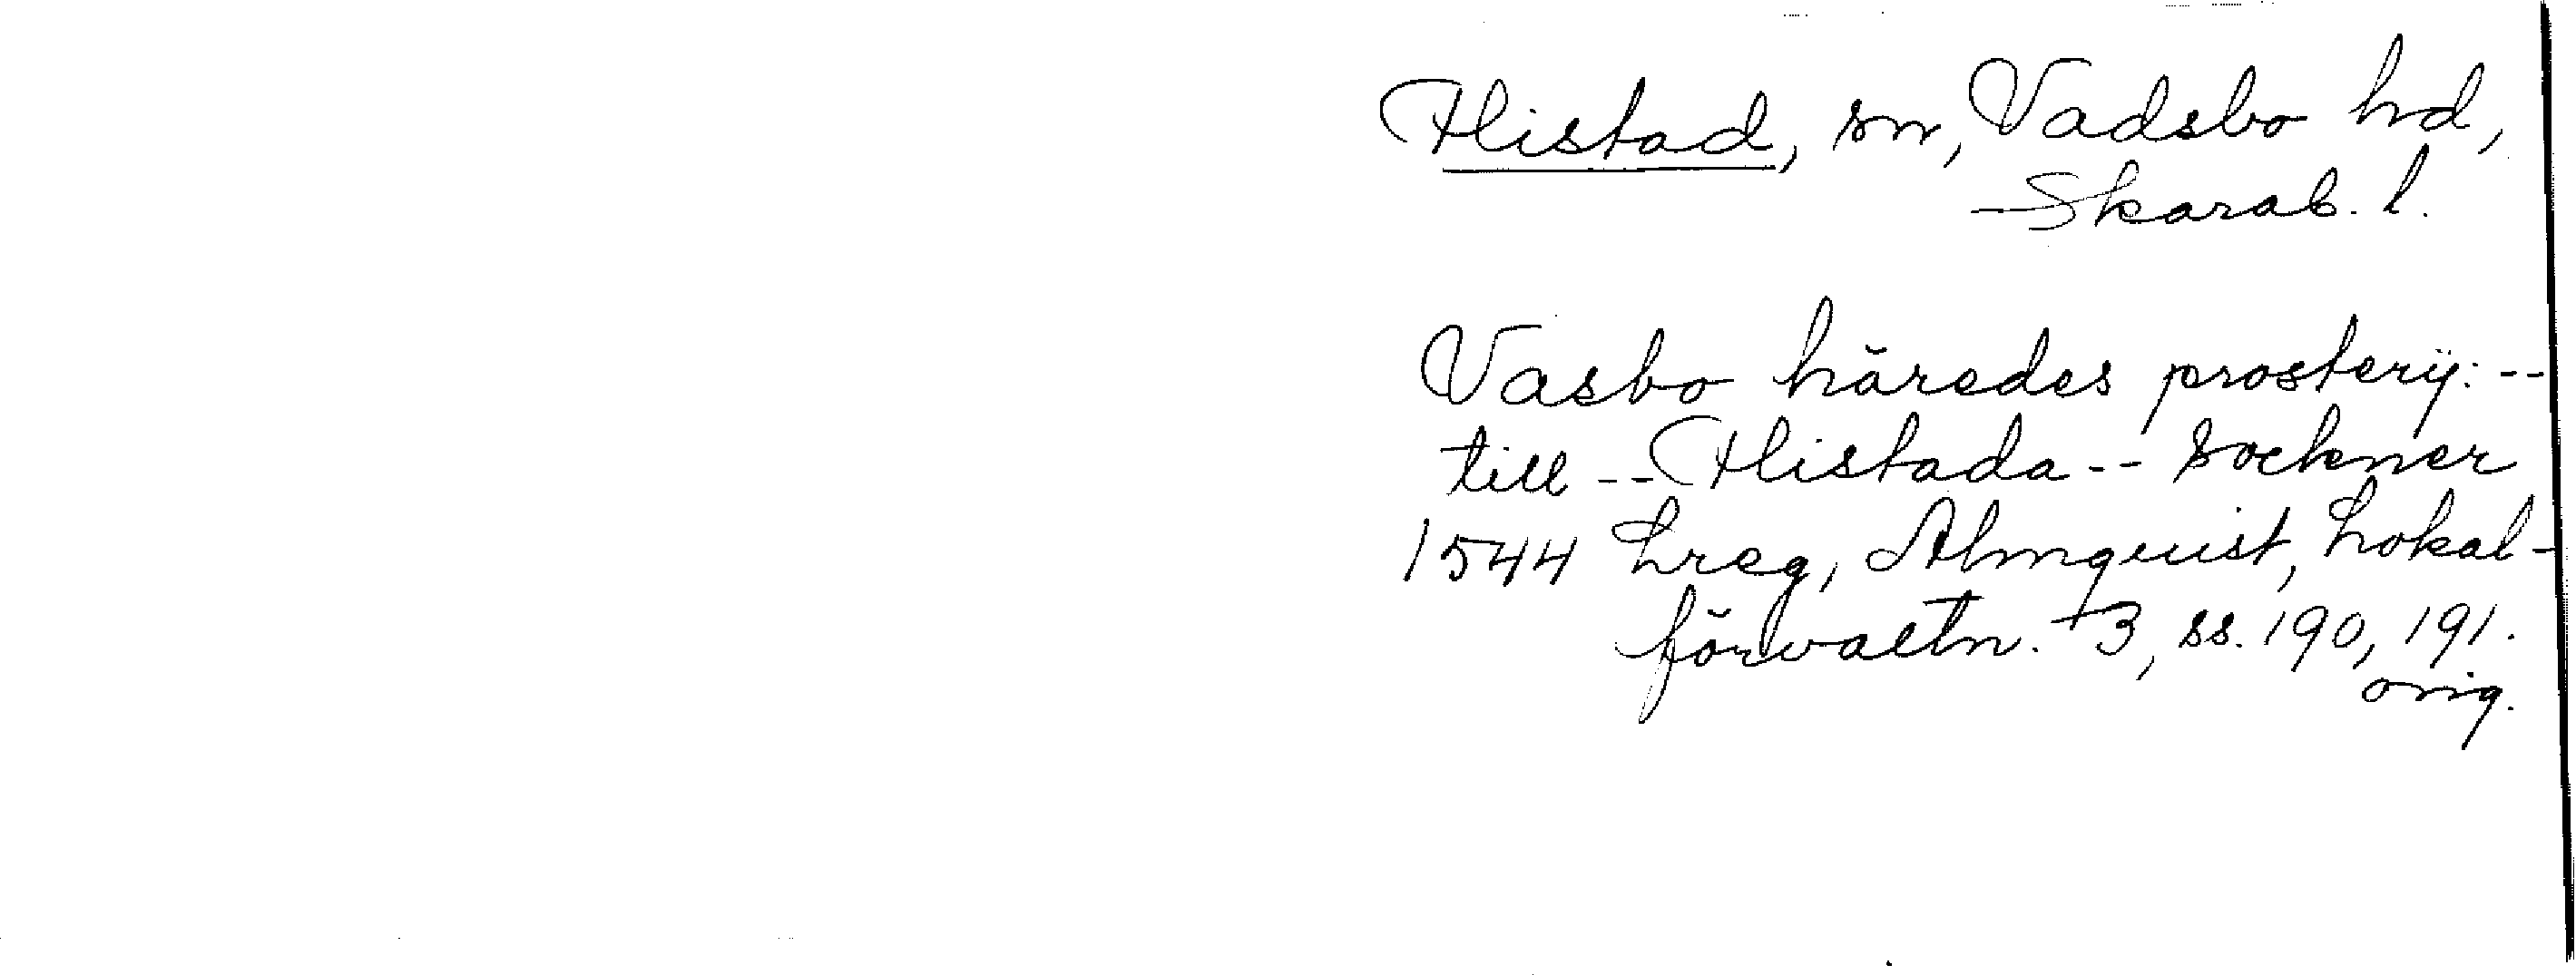 Flistad, sn, Vadsbo hd,
Skarab. l.
Vasbo häredes prosterÿ: --
till -- Flistada -- sockner
1544 Lreg, Almquist, Lokal-
förvaltn. 3, ss. 190, 191.
orig.